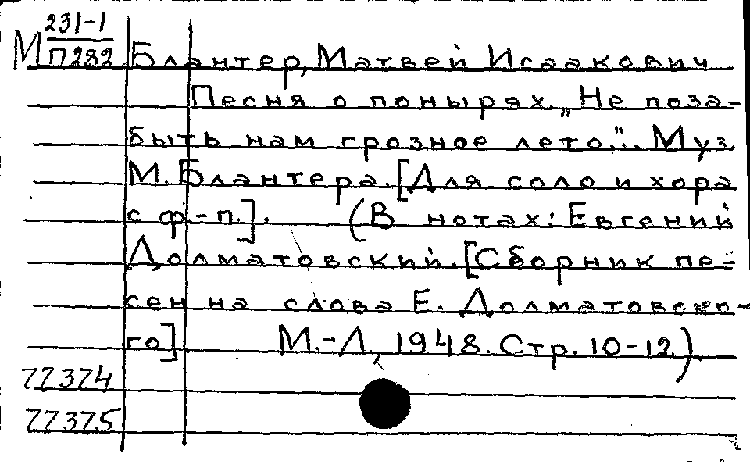 М 231-1
П282 Блантер, Матвей Исаакович
Песня о понырях. „Не поза-
быть нам грозное лето.". Муз.
М. Блантера. [Для соло и хора
с ф-п.]. (В нотах: Евгений
Долматовский. [Сборник пе-
сен на слова Е. Долматовско-
го] М.-Л, 1948. Стр. 10-12)
77374
77375